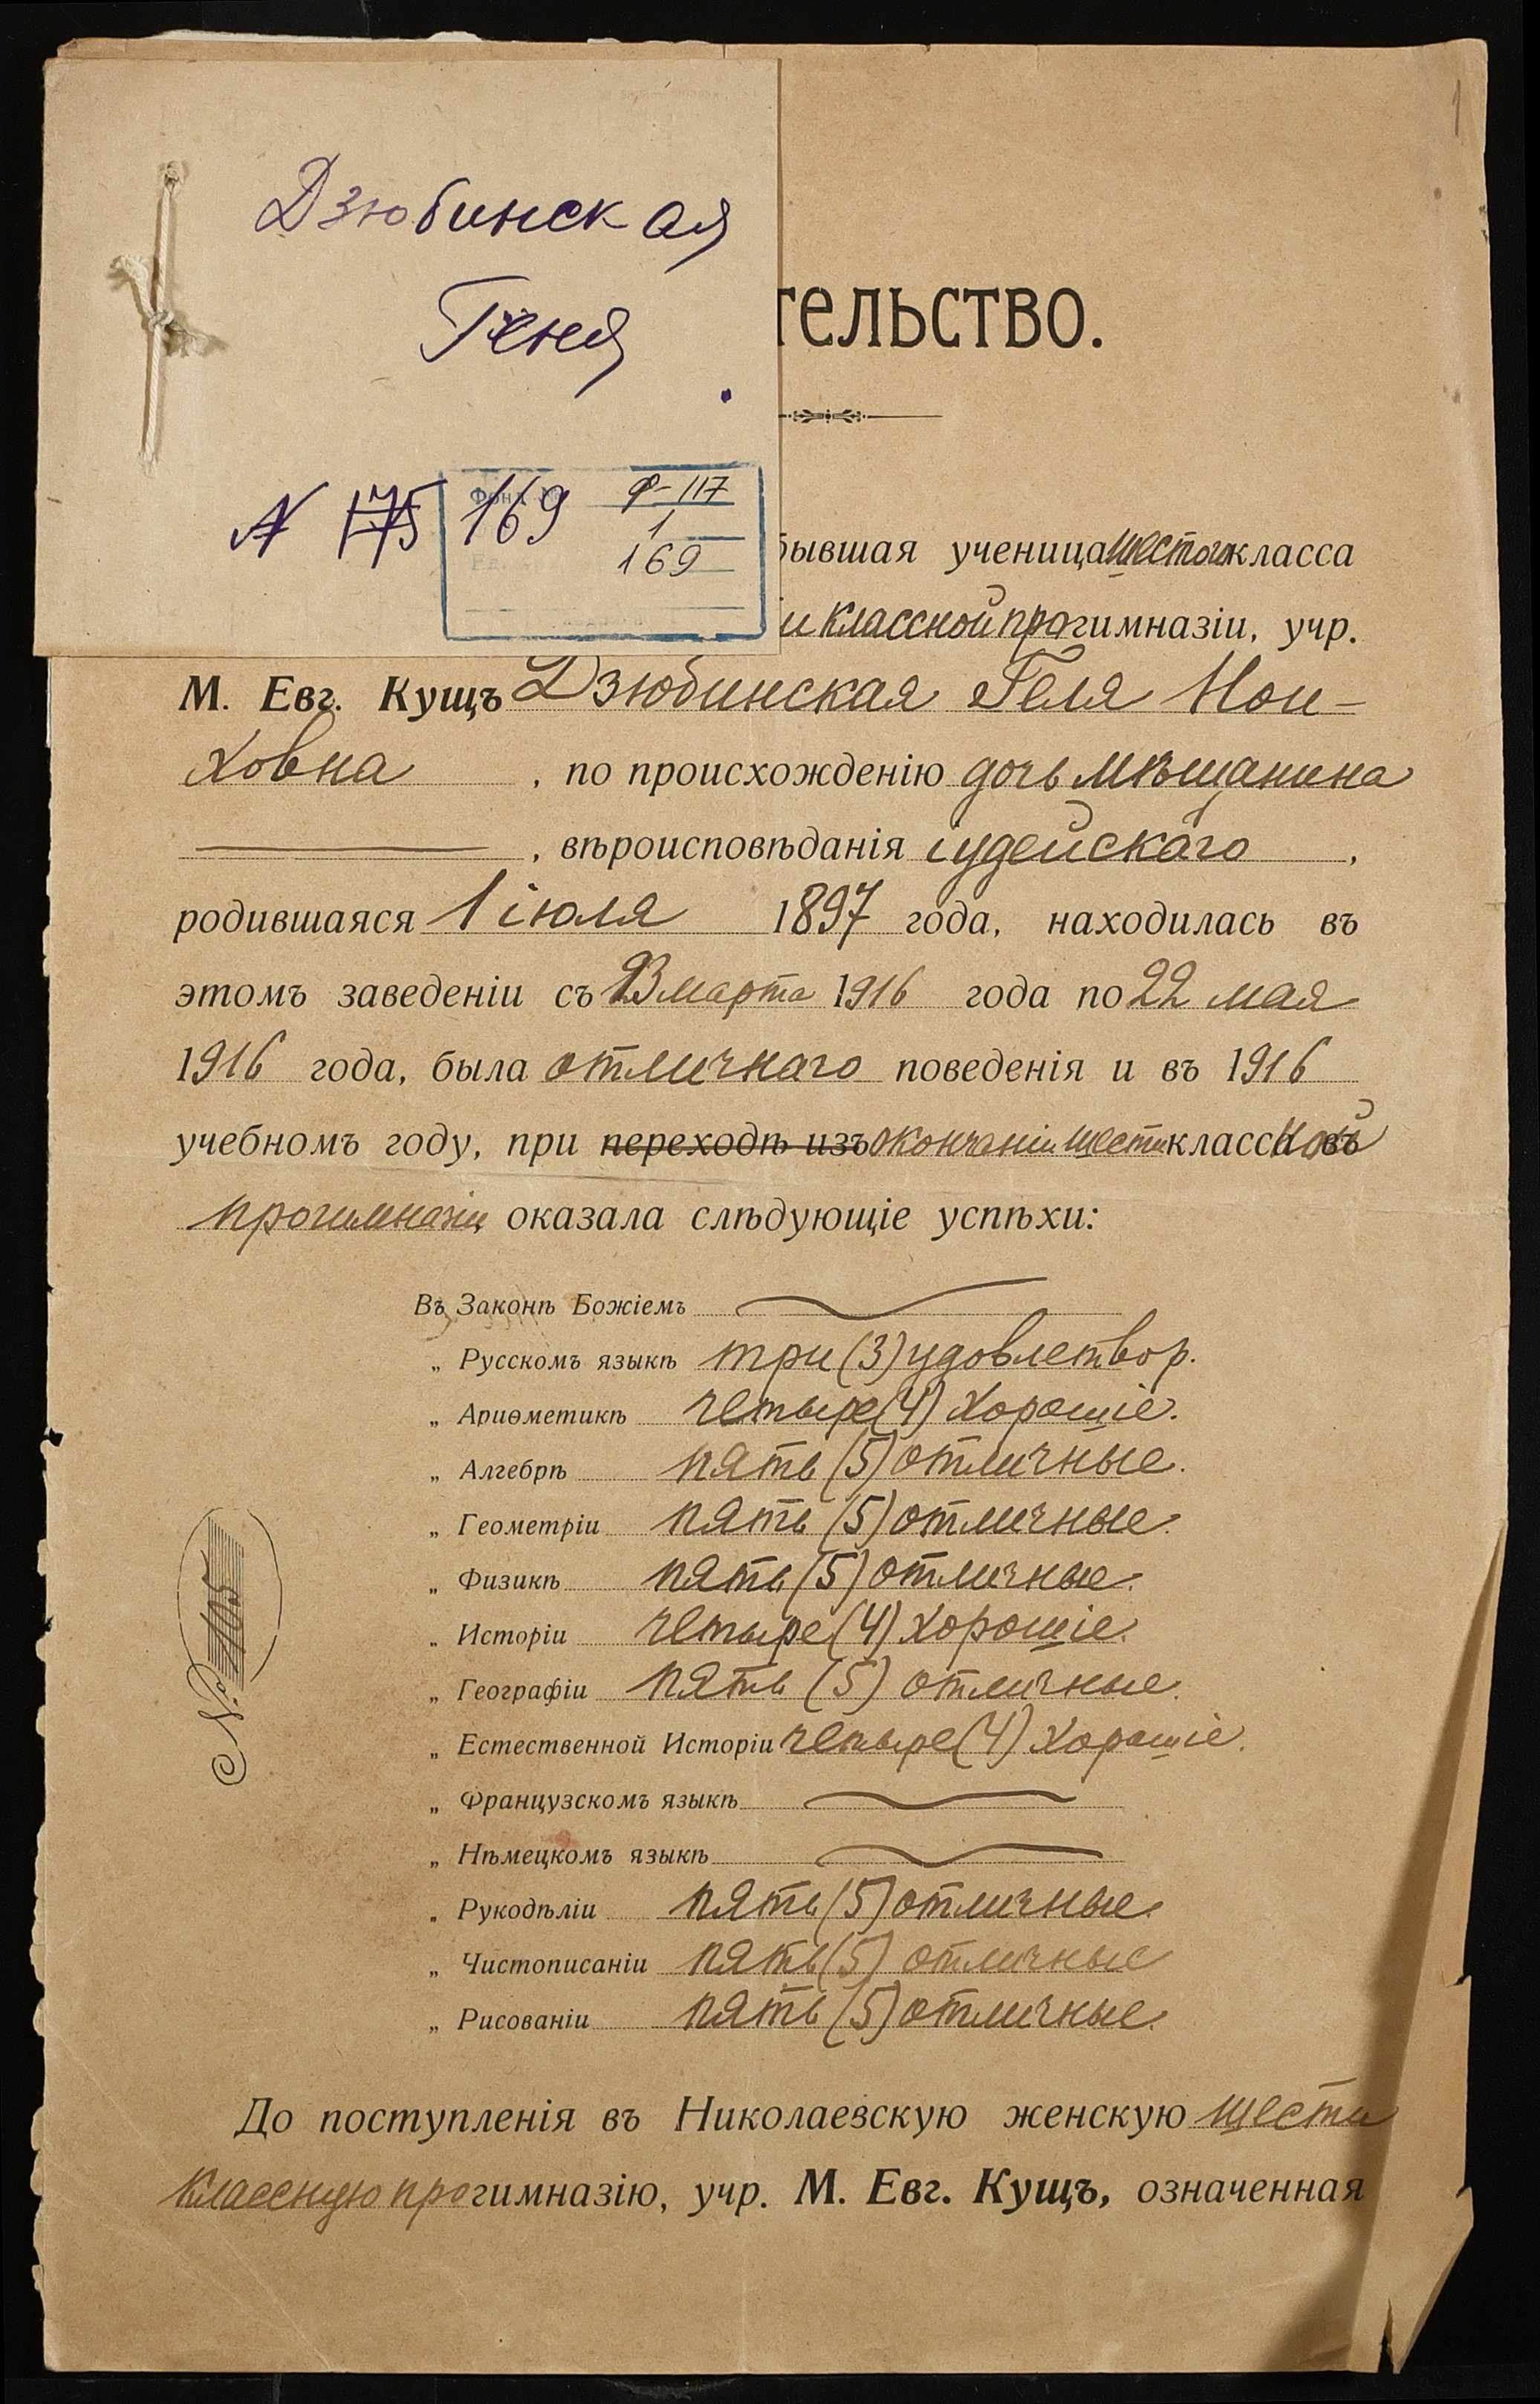 1
Дзюбинская
Геня
тельство.
N 175 169
Фонд
Ф-117
1
169
бывшая ученица шестого класса
и классной прогимназіи, учр.
М. Евг. Кущъ Дзюбинская Геля Нои-
ховна , по происхожденію дочь мѣщанина
, вѣроисповѣданія іудейскаго ,
родившаяся 1 іюля 1897 года, находилась въ
этомъ заведеніи съ 23 марта 1916 года по 22 мая
1916 года, была отличнаго поведенія и въ 1916
учебномъ году, при переходѣ изъ окончаніи шести классной въ
прогимназіи оказала слѣдующіе успѣхи:
Въ Законѣ Божіемъ
„ Русскомъ языкѣ три (3) удовлетвор.
„ Ариѳметикѣ четыре (4) хорошіе.
„ Алгебрѣ пять (5) отличные.
„ Геометріи пять (5) отличные.
„ Физикѣ пять (5) отличные.
„ Исторіи четыре (4) хорошіе.
„ Географіи пять (5) отличные.
„ Естественной Исторіи четыре (4) хорошіе.
„ Французскомъ языкѣ
„ Нѣмецкомъ языкѣ
„ Рукодѣліи пять (5) отличные.
„ Чистописаніи пять (5) отличные
„ Рисованіи пять (5) отличные.
№ 105
До поступленія въ Николаевскую женскую шести
классную прогимназію, учр. М. Евг. Кущъ, означенная